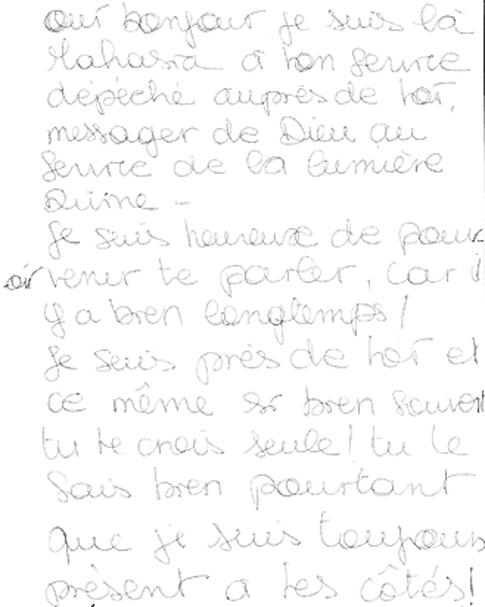 oui bonjour je suis là
Mahasia à ton service
dépéché auprès de toi,
messager de Dieu au
service de la lumière
Divine -
Je suis heureuse de pouv-
oir venir te parler, car il
y a bien longtemps !
Je suis près de toi et
ce même si bien souvent
tu te crois seule ! tu le
sais bien pourtant
que je suis toujours
présent a tes côtés !